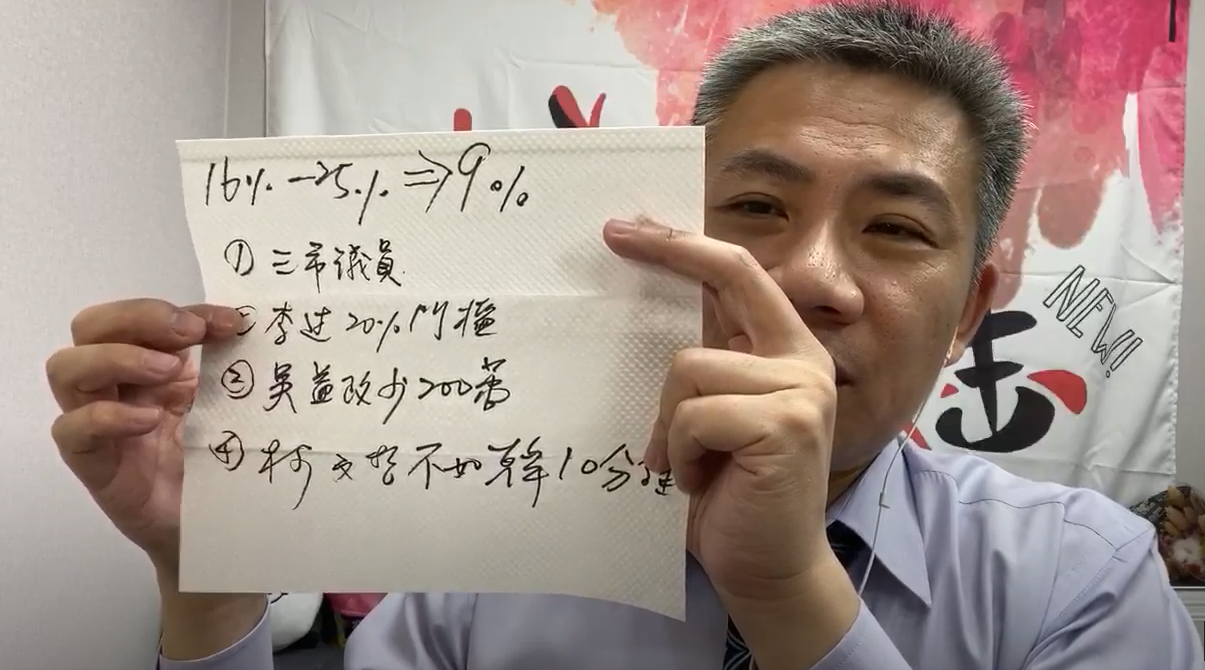 16% → 25% ⇒ 9%
① 三市議員
② 李过20%門檻
③ 吳益政少200萬
④ 柯文哲不如韓10分鐘
NEW!